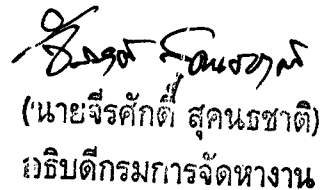 (นายจีรศักดิ์ สุคนธชาติ)
อธิบดีกรมการจัดหางาน